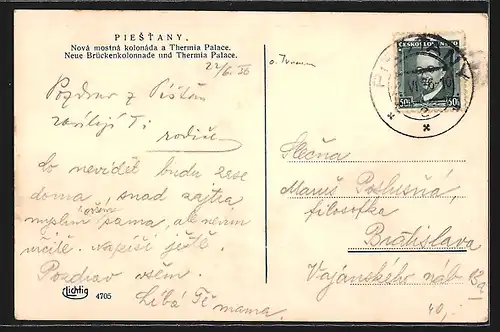 PIEŠŤANY.
Nová mostná kolonáda a Thermia Palace.
Neue Brückenkolonnade und Thermia Palace.
22/6. 36
Pozdrav z Píšťan
zasílejí Ti
rodiče
Co nevidět budu zase
doma snad zajtra
myslím sama, ale nevím
určitě. Napíši ještě.
Pozdrav všem.
Líbá Tě mama.
Lichtig
4705
ČESKOSLOVENSKO
50h 50h
PIEŠŤANY
Slečna
Maruš
filosofka
Bratislava
Vajanského náb
40,-